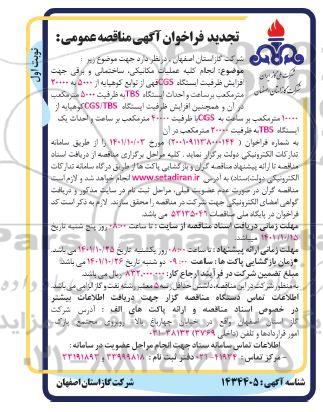 تجدید فراخوان آگهی مناقصه عمومی:
نوبت اول
شرکت گاز استان اصفهان
شرکت گاز استان اصفهان، در نظر دارد جهت موضوع زیر:
موضوع: انجام کلیه عملیات مکانیکی، ساختمانی و برقی جهت
افزایش ظرفیت ایستگاه CGS فهی از توابع کوهپایه از ۵۰۰۰ به ۲۰۰۰۰
مترمکعب بر ساعت و احداث ایستگاه TBS به ظرفیت ۵۰۰۰ مترمکعب
در آن و همچنین افزایش ظرفیت ایستگاه CGS/TBS کوهپایه از
۱۰۰۰۰ مترمکعب بر ساعت به CGS با ظرفیت ۴۰۰۰۰ مترمکعب بر ساعت و احداث یک
ایستگاه TBS به ظرفیت ۲۰۰۰۰ مترمکعب در آن
به شماره فراخوان (۲۰۰۱۰۹۱۱۳۸۰۰۰۱۴۴) مورخ ۱۴۰۱/۱۰/۰۳ را از طریق سامانه
تدارکات الکترونیکی دولت برگزار نماید. کلیه مراحل برگزاری مناقصه از دریافت اسناد
مناقصه تا ارائه پیشنهاد مناقصه گران و بازگشایی پاکت ها از طریق درگاه سامانه تدارکات
الکترونیکی دولت (ستاد) به آدرس www.setadiran.ir انجام خواهد شد و لازم است
مناقصه گران در صورت عدم عضویت قبلی، مراحل ثبت نام در سایت مذکور و دریافت
گواهی امضای الکترونیکی جهت شرکت در مناقصه را محقق سازند. لازم به ذکر است کد
فراخوان در پایگاه ملی مناقصات ۵۲۱۳۵۰۴۲ می باشد.
مهلت زمانی دریافت اسناد مناقصه از سایت: تا ساعت ۰۸:۰۰ روز پنج شنبه تاریخ
۱۴۰۱/۱۰/۱۵ میباشد
مهلت زمانی ارائه پیشنهاد: تا ساعت ۰۸:۰۰ روز یکشنبه تاریخ ۱۴۰۱/۱۰/۲۵ می باشد.
زمان بازگشایی پاکت ها: ساعت ۰۹:۰۰ دو شنبه تاریخ ۱۴۰۱/۱۰/۲۶ می باشد
مبلغ تضمین شرکت در فرآیند ارجاع کار: ۸,۸۳۲,۰۰۰,۰۰۰ ریال می باشد.
به منظور شرکت در این مناقصه، داشتن حداقل رتبه ۵ معتبر رشته نفت و گاز الزامی می باشد.
اطلاعات تماس دستگاه مناقصه گزار جهت دریافت اطلاعات بیشتر
در خصوص اسناد مناقصه و ارائه پاکت های الف: آدرس شرکت
گاز استان اصفهان واقع در خیابان چهارباغ بالا، روبروی مجتمع پارک
امور قراردادها و تلفن (داخلی ۳۷۶۹) ۳۸۱۳۲-۰۳۱
اطلاعات تماس سامانه ستاد جهت انجام مراحل عضویت در سامانه:
مرکز تماس: ۴۱۹۳۴-۰۲۱ دفتر ثبت نام: ۸۸۹۶۹۷۳۷ و ۸۵۱۹۳۷۶۸
شناسه آگهی: ۱۴۳۴۴۰۵
شرکت گاز استان اصفهان